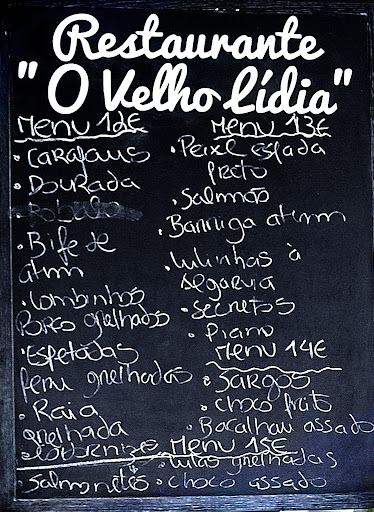 Restaurante
"O Velho Lídia"
Menu 12€
• Carapaus
• Dourada
• Robalo
• Bife de
atum
• Lombinhos
Porco grelhados
• Espetadas
Peru grelhadas
• Raia
grelhada
Menu 13€
• Peixe espada
preto
• Salmão
• Barriga atum
• Lulinhas à
algarvia
• Secretos
• Piano
Menu 14€
• Sargos
• Choco frito
• Bacalhau assado
Menu 15€
• Salmonetes
• Lulas grelhadas
• Choco assado